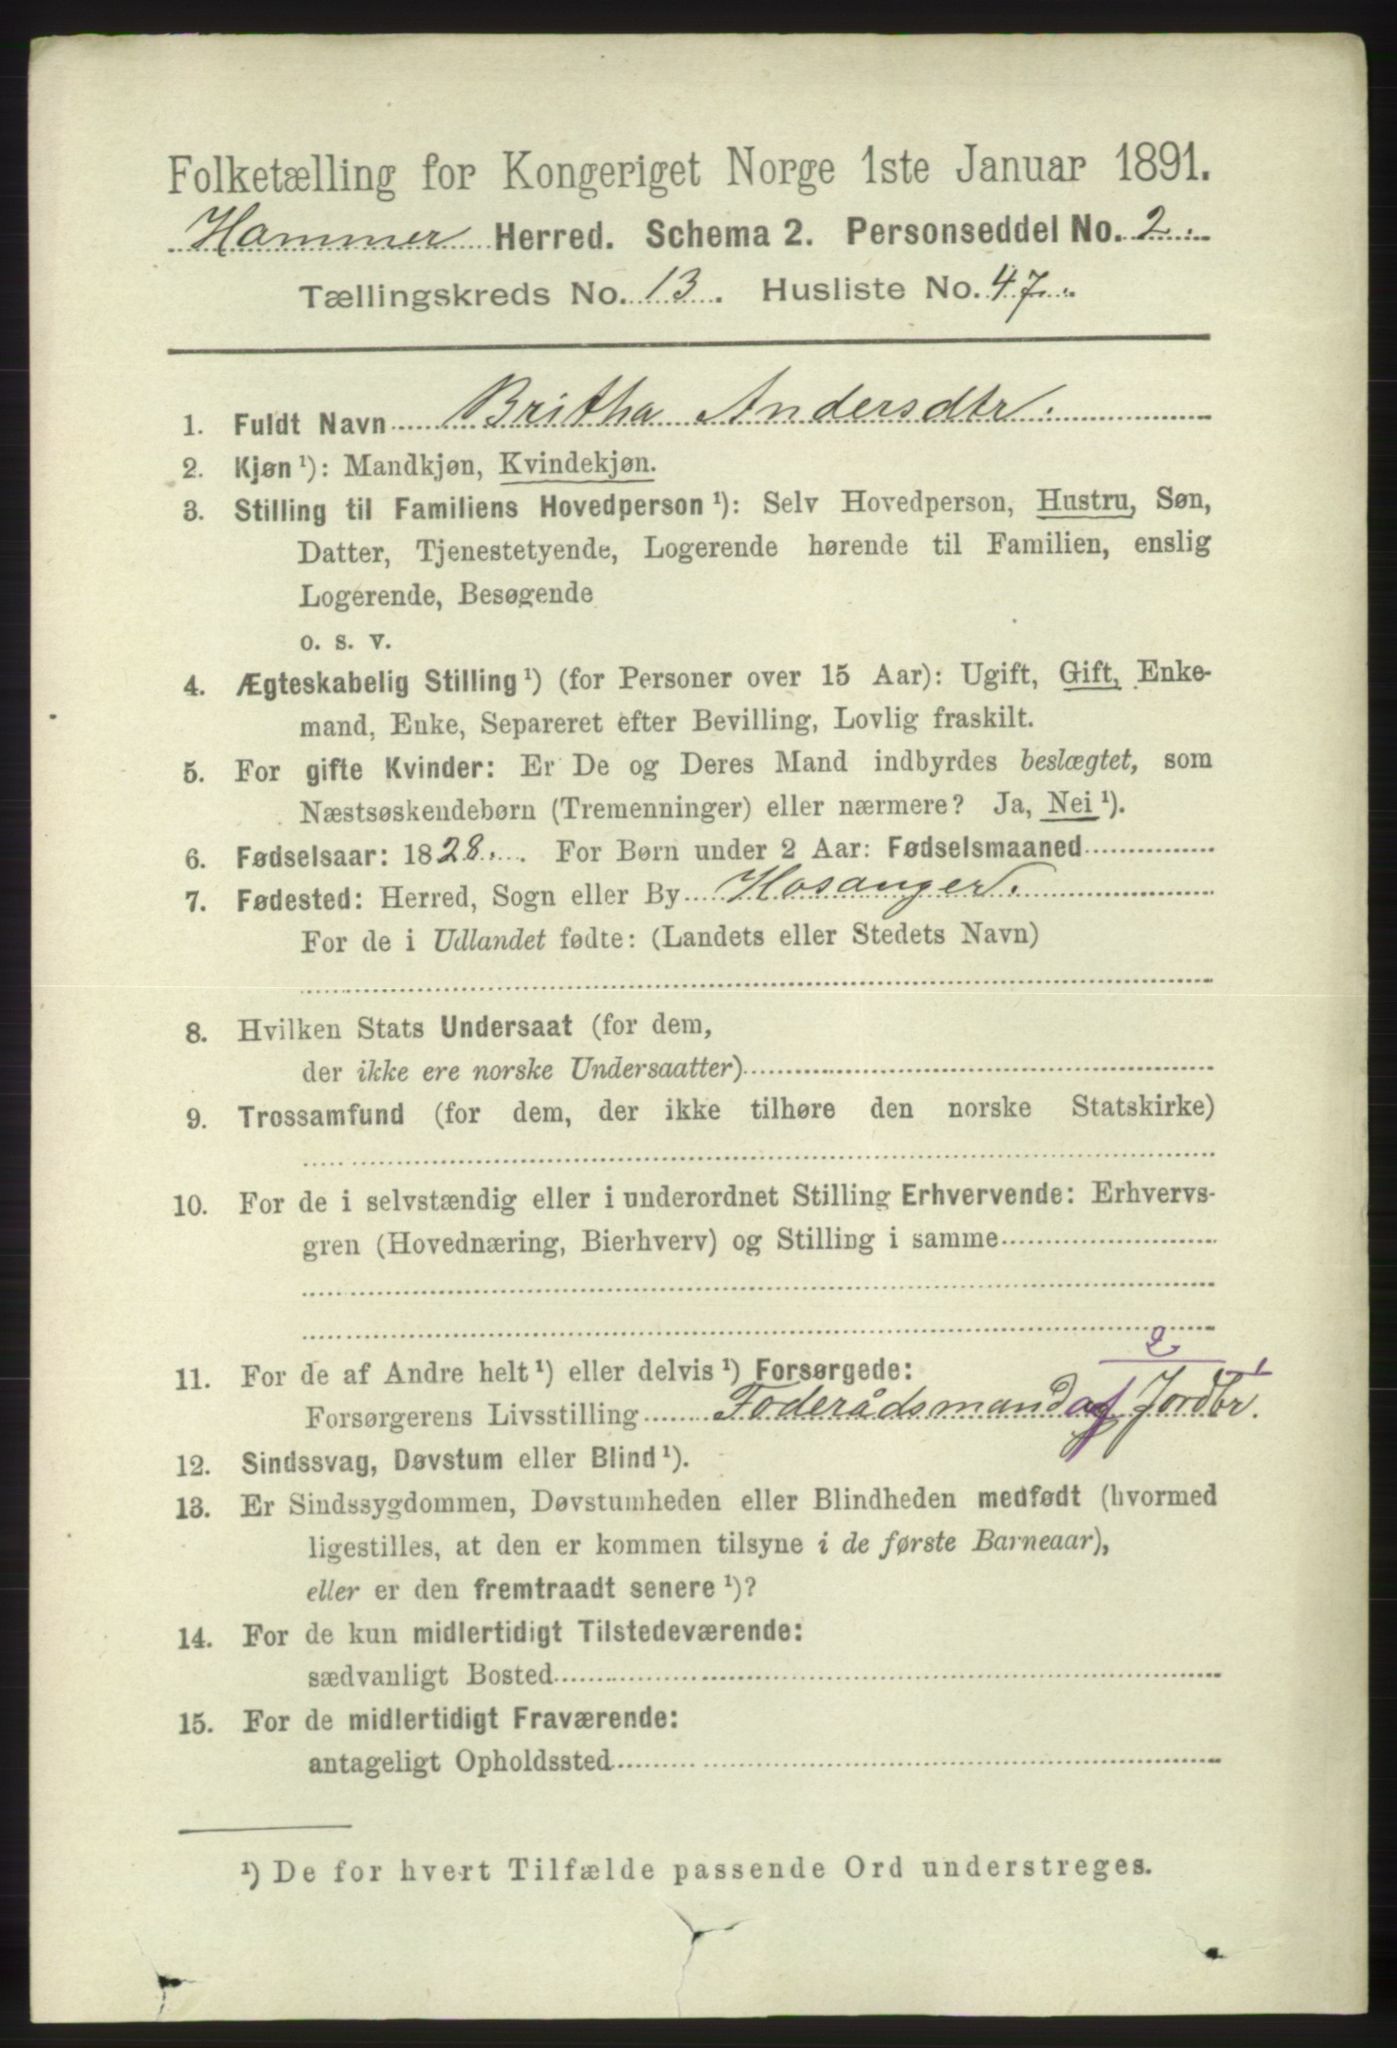 Folketælling for Kongeriget Norge 1ste Januar 1891.
Hammer Herred. Schema 2. Personseddel No. 2.
Tællingskreds No. 13. Husliste No. 47.
1. Fuldt Navn Britha Andersdtr.
2. Kjøn ¹): Mandkjøn, Kvindekjøn.
3. Stilling til Familiens Hovedperson ¹): Selv Hovedperson, Hustru, Søn,
Datter, Tjenestetyende, Logerende hørende til Familien, enslig
Logerende, Besøgende
o. s. v.
4. Ægteskabelig Stilling ¹) (for Personer over 15 Aar): Ugift, Gift, Enke-
mand, Enke, Separeret efter Bevilling, Lovlig fraskilt.
5. For gifte Kvinder: Er De og Deres Mand indbyrdes beslægtet, som
Næstsøskendebørn (Tremenninger) eller nærmere? Ja, Nei ¹).
6. Fødselsaar: 1828. For Børn under 2 Aar: Fødselsmaaned
7. Fødested: Herred, Sogn eller By Hosanger.
For de i Udlandet fødte: (Landets eller Stedets Navn)
8. Hvilken Stats Undersaat (for dem,
der ikke ere norske Undersaatter)
9. Trossamfund (for dem, der ikke tilhøre den norske Statskirke)
10. For de i selvstændig eller i underordnet Stilling Erhvervende: Erhvervs-
gren (Hovednæring, Bierhverv) og Stilling i samme
2
11. For de af Andre helt ¹) eller delvis ¹) Forsørgede:
Forsørgerens Livsstilling Foderådsmand af Jordbr.
12. Sindssvag, Døvstum eller Blind ¹).
13. Er Sindssygdommen, Døvstumheden eller Blindheden medfødt (hvormed
ligestilles, at den er kommen tilsyne i de første Barneaar),
eller er den fremtraadt senere ¹)?
14. For de kun midlertidigt Tilstedeværende:
sædvanligt Bosted
15. For de midlertidigt Fraværende:
antageligt Opholdssted
¹) De for hvert Tilfælde passende Ord understreges.